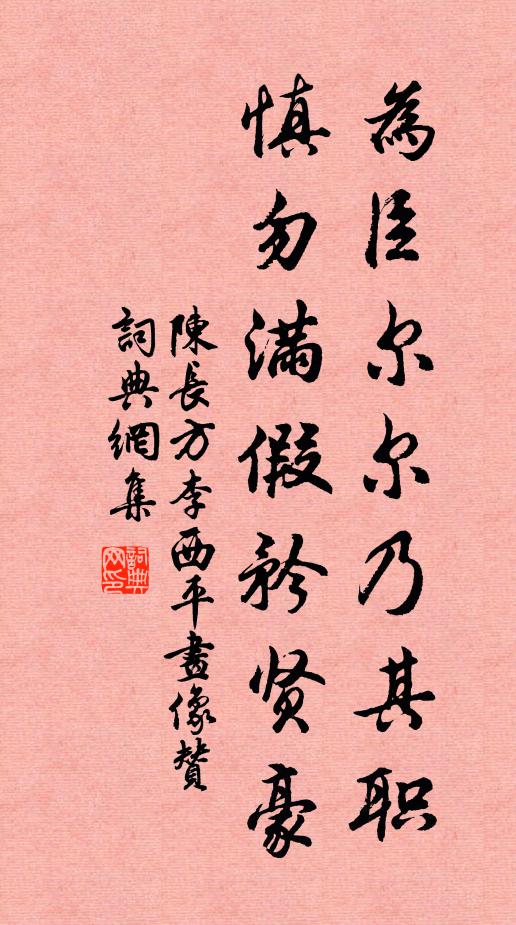 為臣尔尔乃其职
慎勿满假矜贤豪
陳長方李西平畫像贊
詞典網集
詞典网印